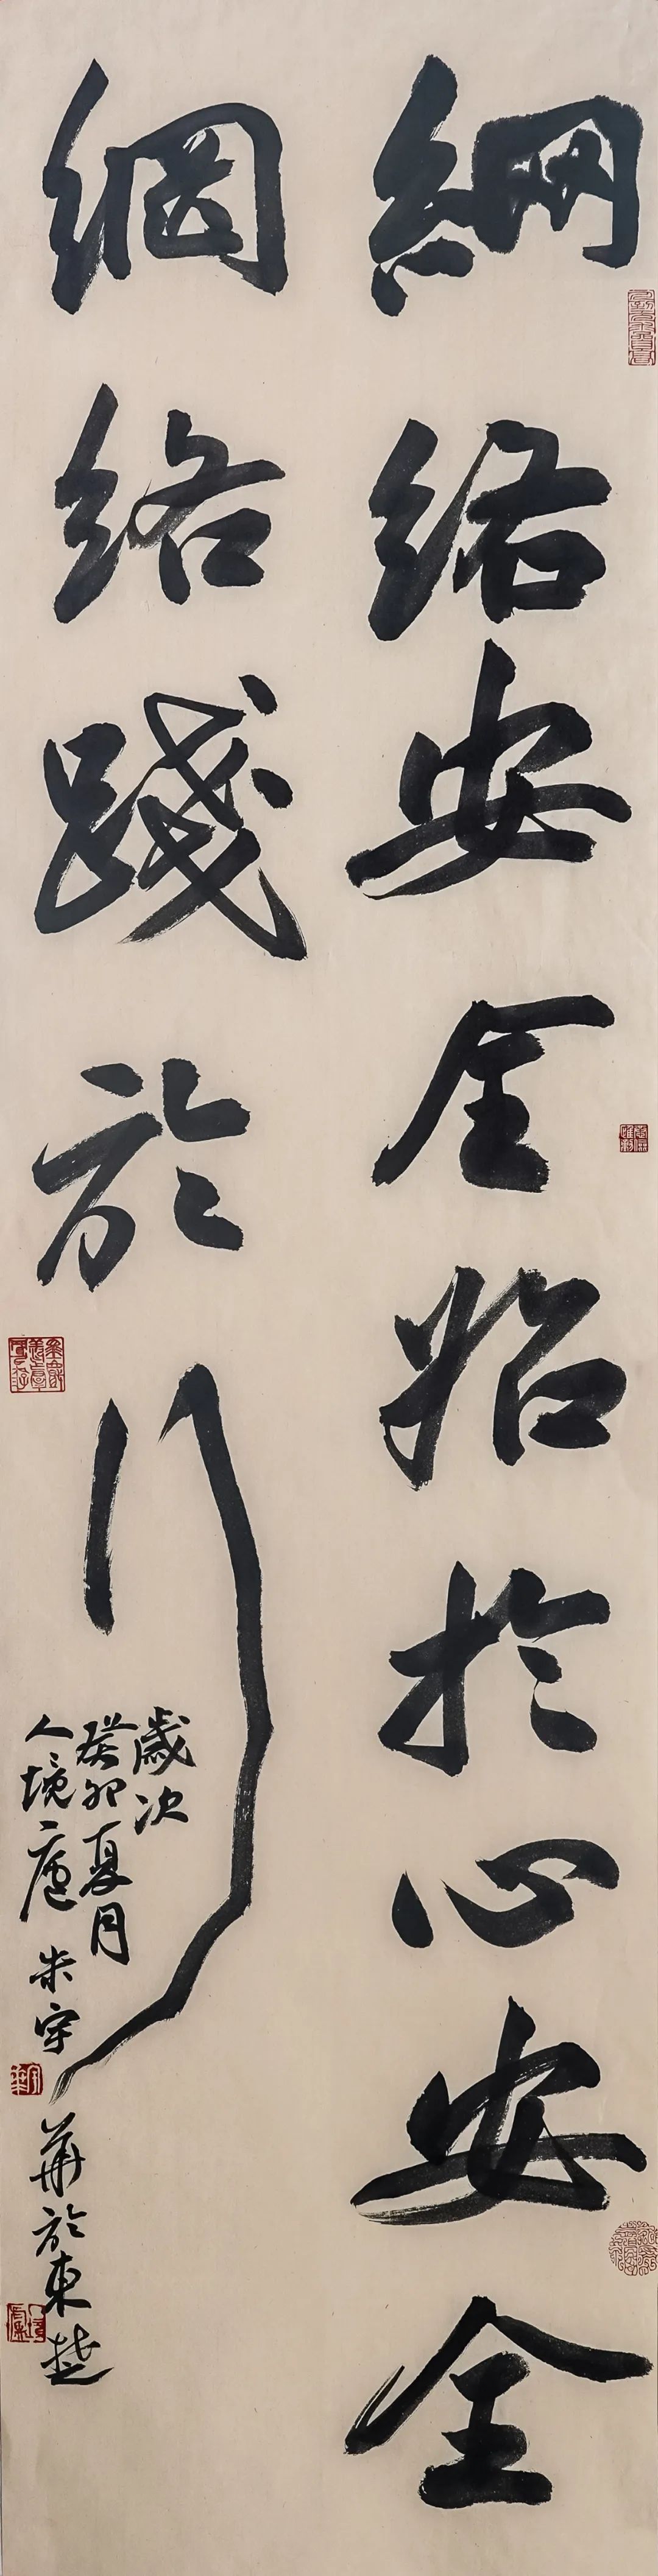 網絡安全始於心安全
網絡踐於行
歲次
癸卯夏月
人境廬 朱宇
華於東楚